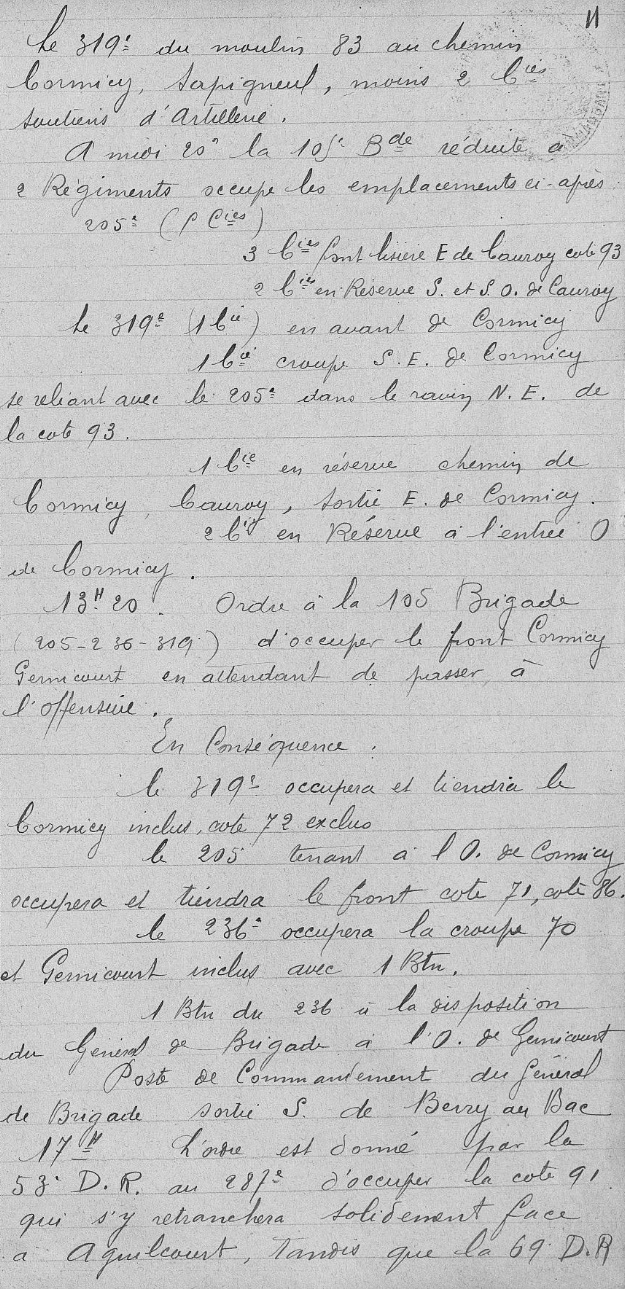 11
Le 319e du moulin 83 au chemin
Cormicy, Sapigneul, moins 2 Cies
soutiens d'Artillerie.
A midi 20 la 105e Bde réduite à
2 Régiments occupe les emplacements ci-après
205e ( Cies)
3 Cies font lisière E de Cauroy cote 93
2 Cies en Réserve S. et S.O. de Cauroy
Le 319e (1 Cie) en avant de Cormicy
1 Cie croupe S.E. de Cormicy
se reliant avec le 205e dans le ravin N.E. de
la cote 93.
1 Cie en réserve chemin de
Cormicy, Cauroy, sortie E. de Cormicy.
2 Cies en Réserve à l'entrée O
de Cormicy.
13H20. Ordre à la 105 Brigade
(205-236-319) d'occuper le front Cormicy
Gernicourt en attendant de passer à
l'offensive.
En Conséquence.
le 319e occupera et tiendra le
Cormicy inclus, cote 72 exclus
le 205 tenant à l'O. de Cormicy
occupera et tiendra le front cote 71, cote 86.
le 236e occupera la croupe 70
et Gernicourt inclus avec 1 Btn.
1 Btn du 236 à la disposition
du Général de Brigade à l'O. de Gernicourt
Poste de Commandement du Général
de Brigade sortie S. de Berry au Bac
17H L'ordre est donné par la
53e D.R. au 287e d'occuper la cote 91
qui s'y retranchera solidement face
à Aguilcourt, tandis que la 69 D.R